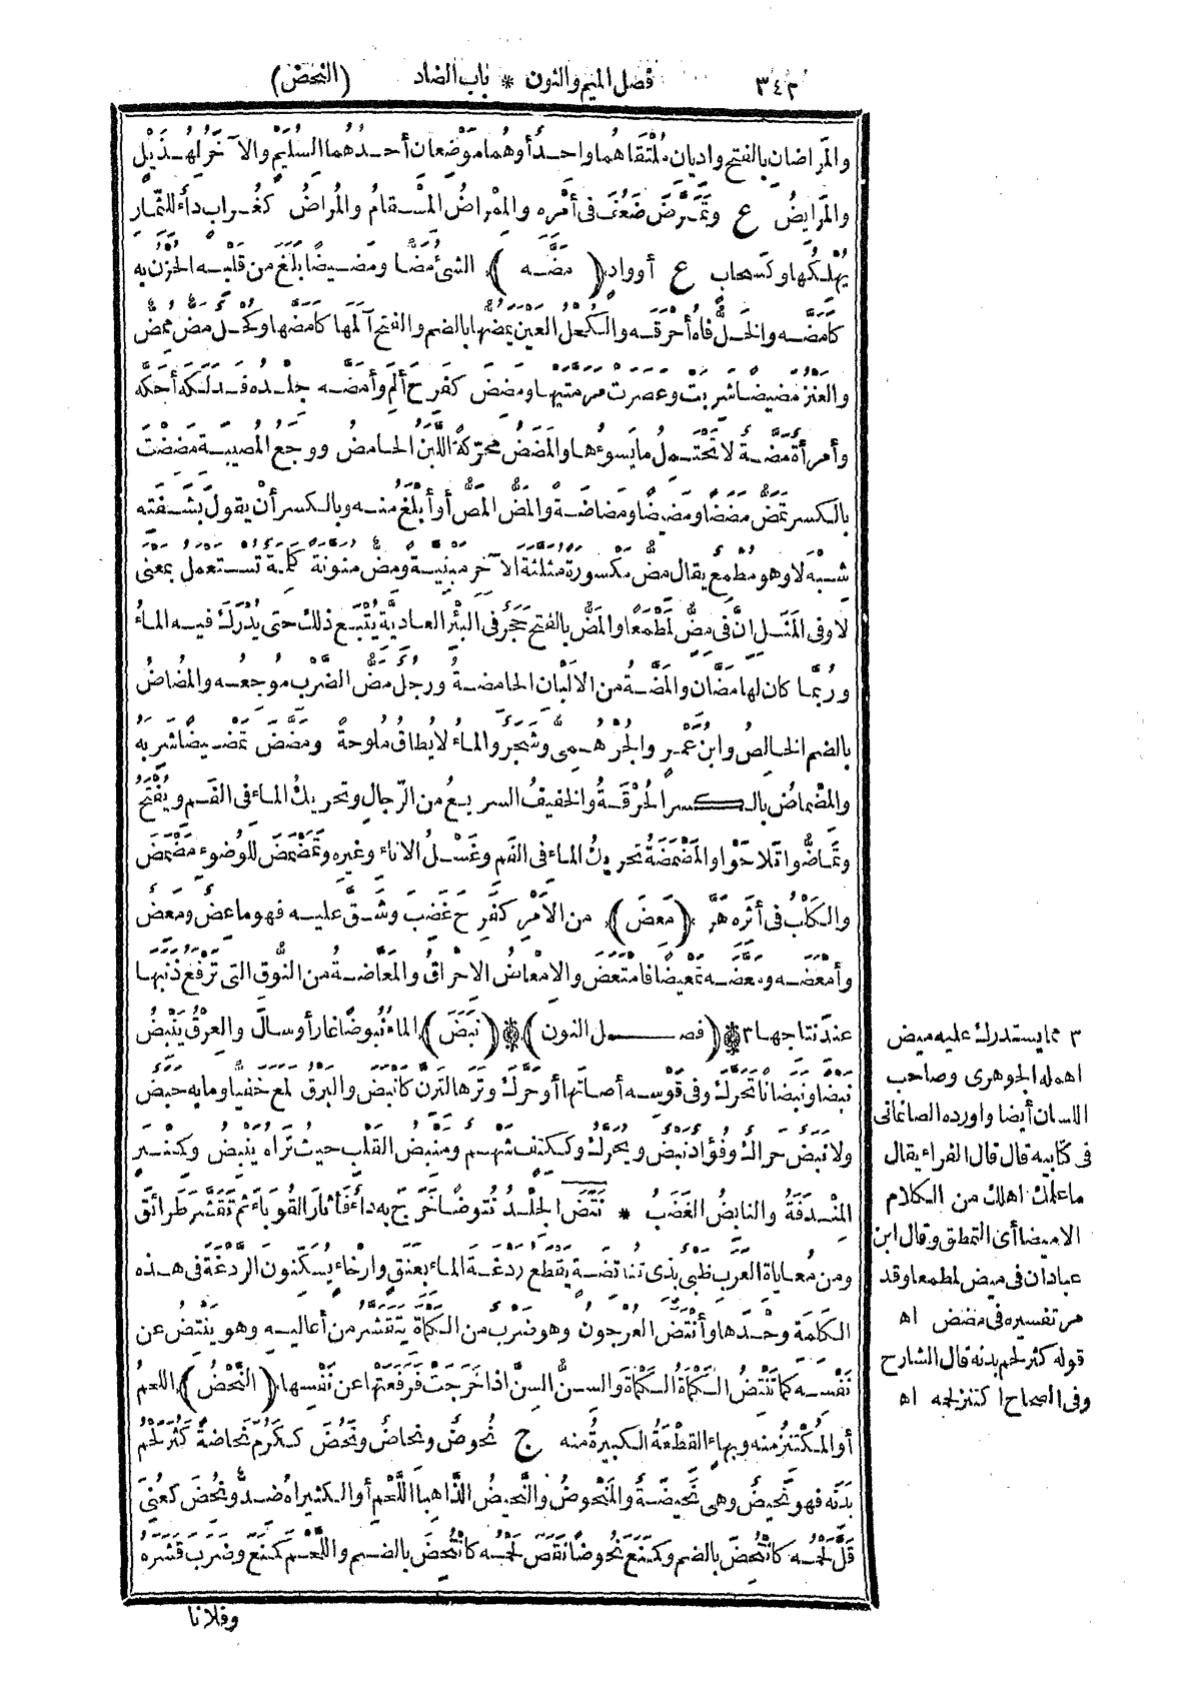 ٣٤٢ فصل الميم والنون * باب الضاد (النحض)
والمَراضان بالفتح واديان مُلْتَقاهُما واحدٌ أو هُما مَوْضِعان أحدُهُما السُلَيْمٍ والآخَرُ لِهُذَيْلٍ
والمَرايِضُ ع وتَمَرَّضَ ضَعُفَ فى أمْرِه والمِمْراضُ المِسْقامُ والمُراضُ كغُرابٍ داءٌ للثِّمارِ
يُهْلِكُها وكسَحابٍ ع أو وادٍ (مَضَّه) الشىُ مَضًّا ومَضيضًا بَلَغَ من قَلْبِه الحُزْنُ به
كأمَضَّه والخَلُّ فاهُ أحْرَقَه والكُحْلُ العَيْنَ يَمُضُّها بالضم والفتح آلَمَها كأمَضَّها وكُحْلٌ مَضٌّ مُمِضٌّ
والعَنْزُ مَضيضًا شَرِبَتْ وعَصَرَتْ مَرَمَّتَيْها ومَضِضَ كفَرِحَ ألِمَ وأمَضَّه جِلْدُه فَدَلَكَه أحَكَّه
وامرأةٌ مَضَّةٌ لا تَحْتَمِلُ ما يَسوءُها والمَضَضُ محرّكةً اللَّبَنُ الحامضُ ووجَعُ المُصيبَةِ مَضِضْتَ
بالكسر تَمَضُّ مَضَضًا ومَضيضًا ومَضاضَةً والمَضُّ المَصُّ أو أبْلَغُ منه وبالكسر أنْ يقولَ بشَفَتِه
شِبْهَ لا وهو مُطْمِعٌ يقال مِضِّ مَكْسورةً مثلثةَ الآخِرِ مَبْنِيَّةً ومِضٍّ منونةً كَلِمَةٌ تُسْتَعْمَلُ بمعنى
لا وفى المَثَلِ إنَّ فى مِضٍّ لَمَطْمَعًا والمَضُّ بالفتح حَجَرٌ فى البِئْرِ العاديَّةِ يُتَّبَعُ ذلك حتى يُدْرَكَ فيه الماءُ
ورُبَّما كان لها مَضَّان والمَضَّةُ من الألْبانِ الحامضةُ ورجُلٌ مَضُّ الضَّرْبِ مُوجِعُه والمُضاضُ
بالضم الخالِصُ وابنُ عَمْرٍو الجُرْهُمِىُّ وشَجَرٌ والماءُ لا يُطاقُ مُلوحةً ومَضَّضَ تَمْضيضًا شَرِبَه
والمِضْماضُ بالكسر الحُرْقَةُ والخفيفُ السريعُ من الرِّجالِ وتحريكُ الماءِ فى الفَمِ ويُفْتَحُ
وتَماضُّوا تَلاحَوْا والمَضْمَضَةُ تحريكُ الماءِ فى الفَمِ وغَسْلُ الإناءِ وغيرِه وتَمَضْمَضَ للوُضوءِ مَضْمَضَ
والكَلْبُ فى أثَرِه هَرَّ (مَعِضَ) من الأمْرِ كفَرِحَ غَضِبَ وشَقَّ عليه فهو ماعِضٌ ومَعِضٌ
وأمْعَضَه ومَعَّضَه تَمْعيضًا فامْتَعَضَ والإمْعاضُ الإحْراقُ والمَعَّاضةُ من النُّوقِ التى تَرْفَعُ ذَنَبَها
عندَ نتاجِها ٣ (فصل النون) (نَبَضَ) الماءُ نُبوضًا غارَ أو سالَ والعِرْقُ يَنْبِضُ
نَبْضًا ونَبَضانًا تَحَرَّكَ وفى قَوْسِه أصاتَها أو حَرَّكَ وتَرَها لتَرِنَّ كأنْبَضَ والبَرْقُ لَمَعَ خَفِيًّا وما به حَبَضٌ
ولا نَبَضٌ حَراكٌ وفُؤادٌ نَبْضٌ ويُحَرَّكُ وككَتِفٍ شَهْمٌ ومَنْبِضُ القَلْبِ حيثُ تَراه يَنْبِضُ وكمِنْبَرٍ
المِنْدَفَةُ والنابِضُ الغَضَبُ * نَتَضَ الجِلْدُ نُتوضًا خَرَجَ به داءٌ فأثارَ القُوَباءَ ثم تَقَشَّرَ طَرائقَ
ومن مُعاياةِ العَرَبِ ظَبْىٌ بذى تَناتِضَةٍ يَقْطَعُ رَدْغَةَ الماءِ بعَنَقٍ وإرْخاءٍ يُسَكِّنون الرَّدْغَةَ فى هذه
الكلمةِ وحْدَها وأنْتَضَ العُرْجونُ وهو ضَرْبٌ من الكَمْأَةِ يَتَقَشَّرُ من أعاليه وهو يَنْتِضُ عن
نَفْسِه كما تَنْتِضُ الكَمْأَةُ الكَمْأَةَ والسِنُّ السِنَّ اذا خَرَجَتْ فرَفَعَتْها عن نَفْسِها (النَّحْضُ) اللحمُ
أو المُكْتَنِزُ منه وبهاءٍ القِطْعَةُ الكبيرةُ منه ج نُحوضٌ ونِحاضٌ ونَحُضَ ككَرُمَ نَحاضةً كَثُرَ لَحْمُ
بَدَنِه فهو نَحيضٌ وهى نَحيضَةٌ والمَنْحوضُ والنَّحيضُ الذَّاهِبا اللَّحْمِ أو الكثيراهُ ضِدٌّ ونُحِضَ كعُنِىَ
قَلَّ لَحْمُه كانْتُحِضَ بالضم وكمَنَعَ نُحوضًا نَقَصَ لَحْمُه كانْتُحِضَ بالضم واللَّحْمَ كمَنَعَ وضَرَبَ قَشَرَهُ
وفلانا
٣ مما يستدرك عليه ميض
اهمله الجوهرى وصاحب
اللسان أيضا واورده الصاغانى
فى كتابيه قال قال الفراء يقال
ما علمك اهلك من الكلام
الا ميضا أى التمطق وقال ابن
عبادان فى ميض لمطمعا وقد
مر تفسيره فى مضض اه
قوله كثر لحم بدنه قال الشارح
وفى الصحاح اكتنز لحمه اه